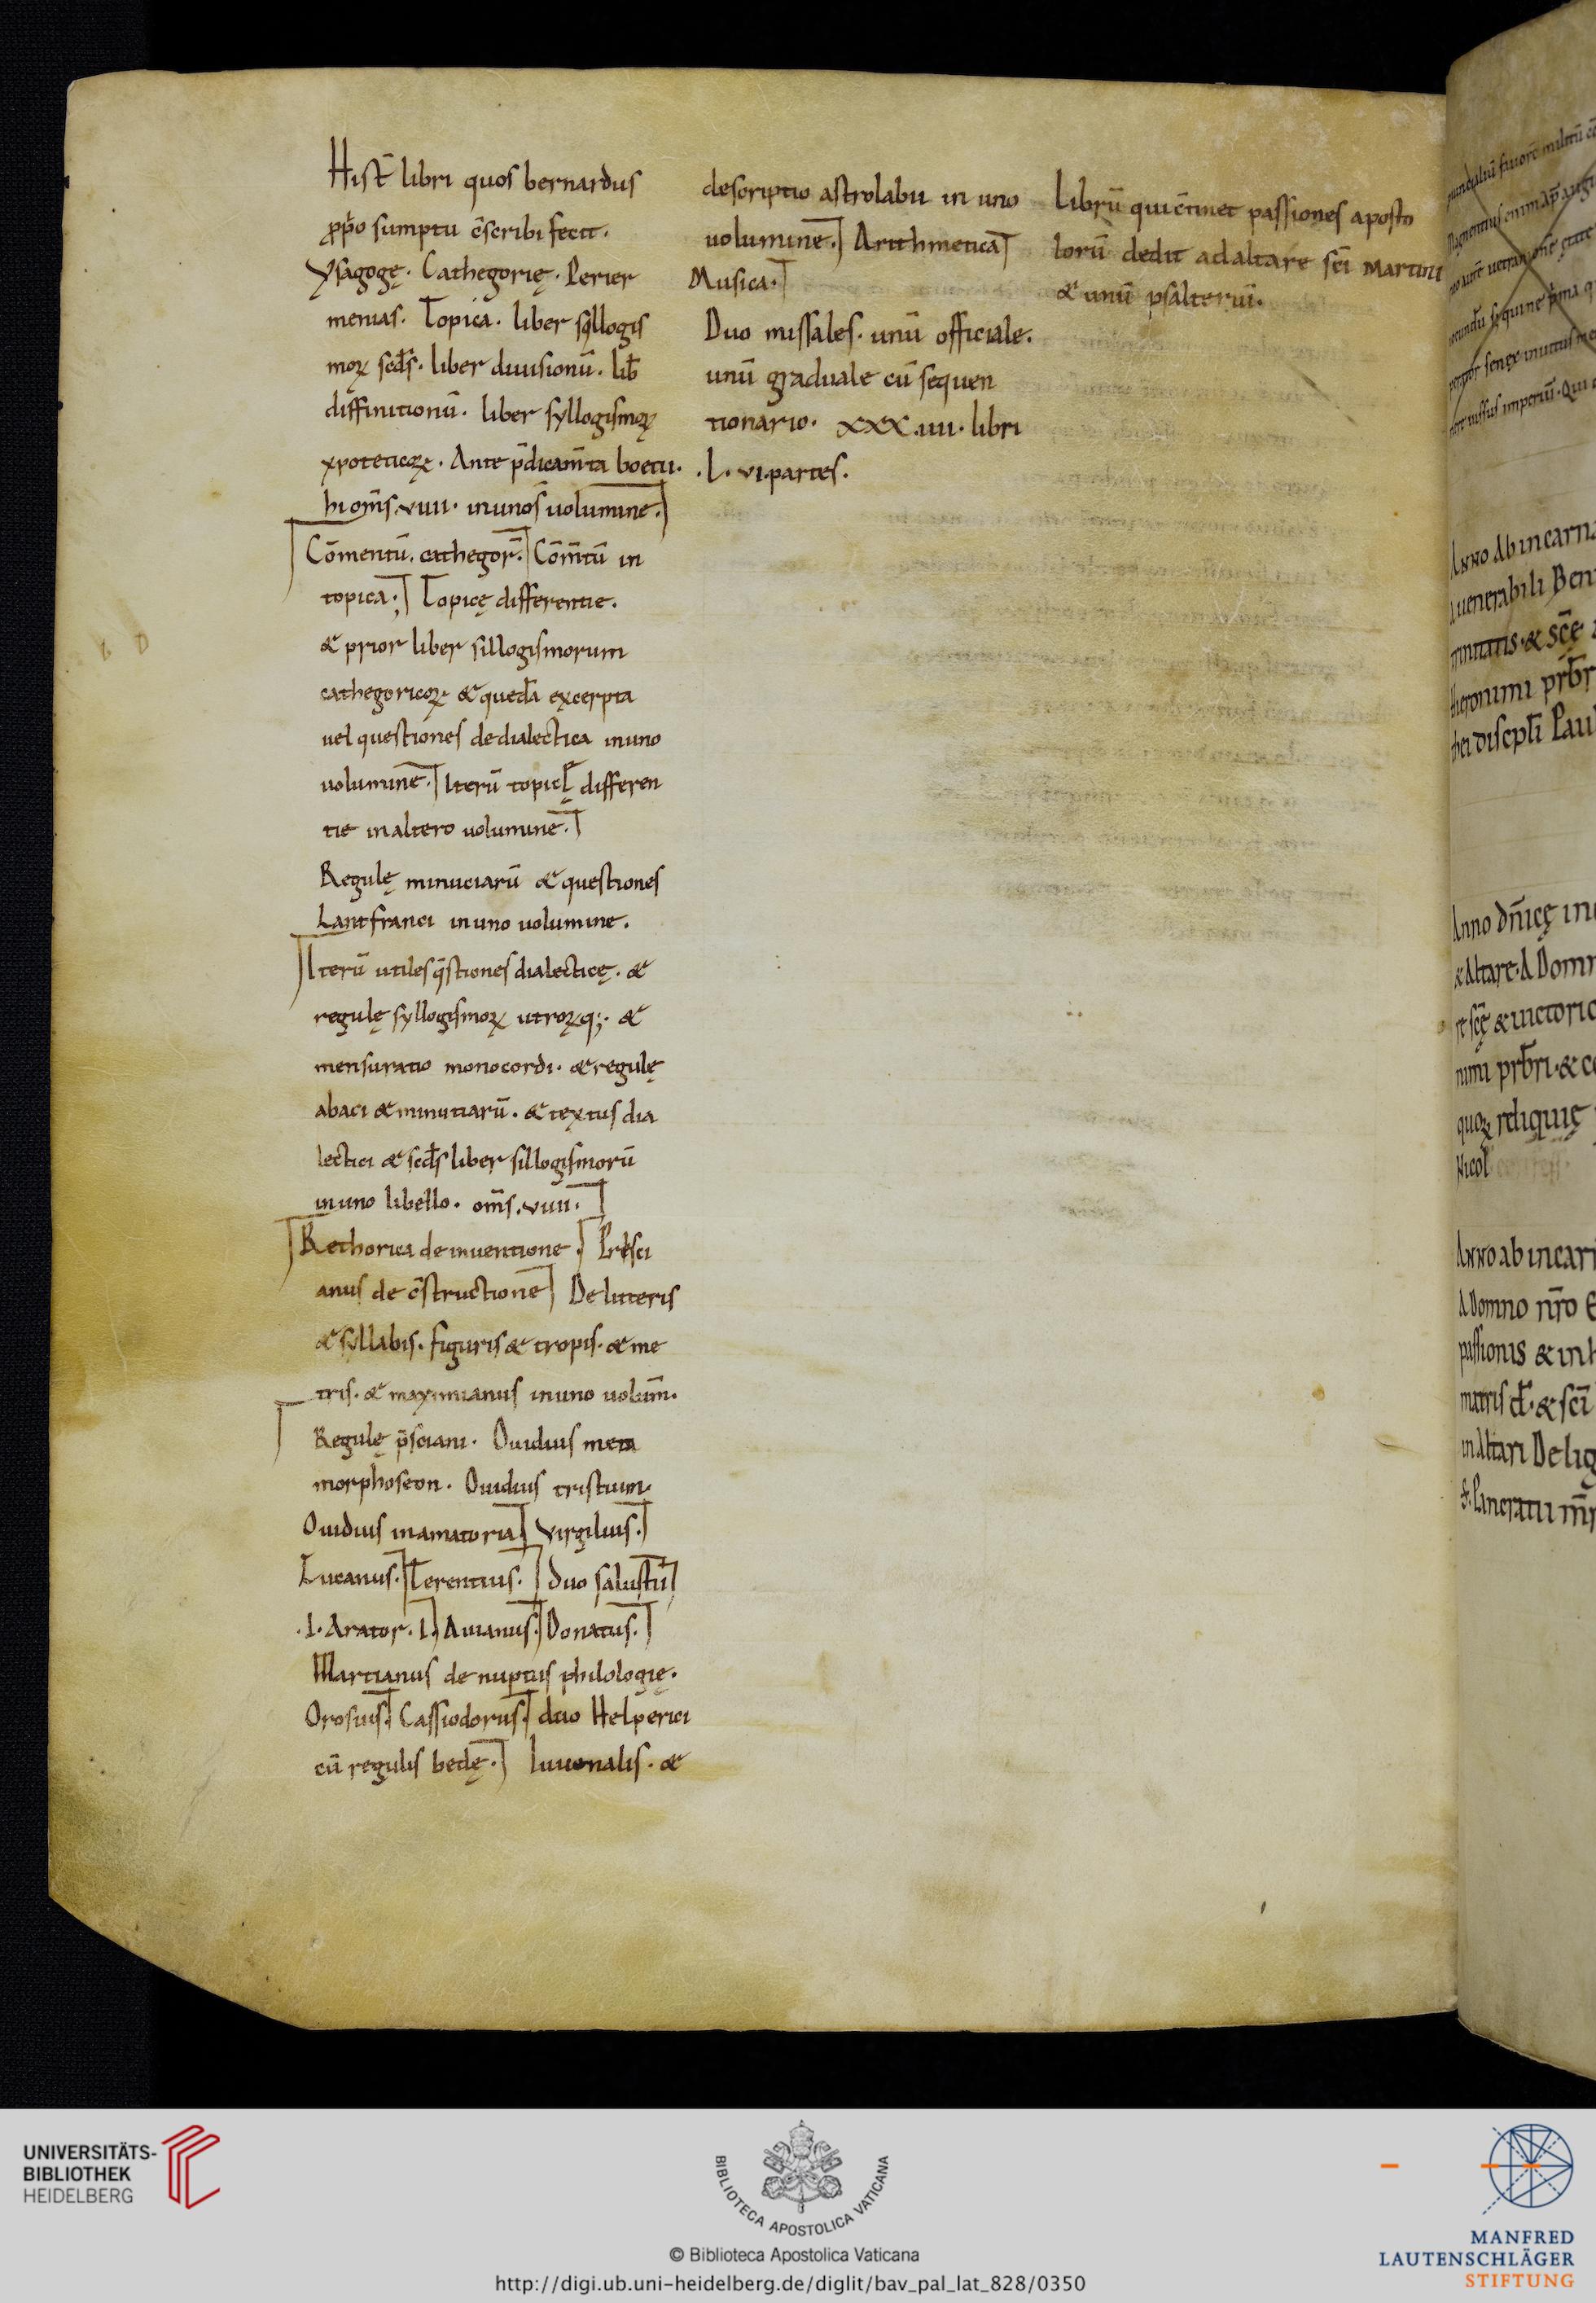 Hi st̄ libri quos bernardus
ꝓp̄o sumptu c̄scribi fecit.
Ysagogę. Cathegorię. Perier
menias. Topica. liber syllogis
moꝝ scd̄s. liber diuisionū. lib̄
diffinitionū. liber syllogismoꝝ
ypoteticoꝝ. Ante p̄dicam̄ta boetii.
hi om̄s. viiii. in uno s̄ uolumine.
Cōmentū. cathegor̄. Cōm̄tū in
topica. Topicę differentie.
& prior liber sillogismorum
cathegoricoꝝ & quedā excerpta
uel questiones de dialectica in uno
uolumine. Iterū topicę differen
tie in altero uolumine.
Regulę minuciarū & questiones
Lantfranci in uno uolumine.
Iterū utiles q̄stiones dialecticę. &
regulę syllogismoꝝ utroꝝq;. &
mensuratio monocordi. & regulę
abaci & minutiarū. & textus dia
lectici & scd̄s liber sillogismorū
in uno libello. om̄s. viiii.
Rethorica de inuentione. Presci
anus de c̄structione De litteris
& syllabis. figuris & tropis. & me
tris. & maximianus in uno uolum̄.
Regulę p̄sciani. Ouidius meta
morphoseon. Ouidius tristium.
Ouidius in amatoria. Virgilius.
Lucanus. Terentius. duo salustii
.I. Arator. I. Auianus. Donatus.
Martianus de nuptiis philologię.
Orosius. Cassiodorus. duo Helperici
cū regulis bedę. Iuuenalis. &
descriptio astrolabii in uno
uolumine. Arithmetica
Musica.
Duo missales. unū officiale.
unū graduale cū sequen
tionario. xxx.iiii. libri
.l. vi. partes.
Librū qui c̄tinet passiones aposto
lorū dedit ad altare sc̄i Martini
& unū psalteriū.
Anno ab incarna
A uenerabili Ber
trinitatis. & sc̄ę
hieronimi pr̄b̄r
Anno dn̄icę in
& Altare. A Dom
quoꝝ reliquię
Nicol
Anno ab incar
A Domno nr̄o E
passionis & in h
matris d̄i. & sc̄i
in Altari De lig
UNIVERSITÄTS-
BIBLIOTHEK
HEIDELBERG
BIBLIOTECA APOSTOLICA VATICANA
© Biblioteca Apostolica Vaticana
http://digi.ub.uni-heidelberg.de/diglit/bav_pal_lat_828/0350
MANFRED
LAUTENSCHLÄGER
STIFTUNG